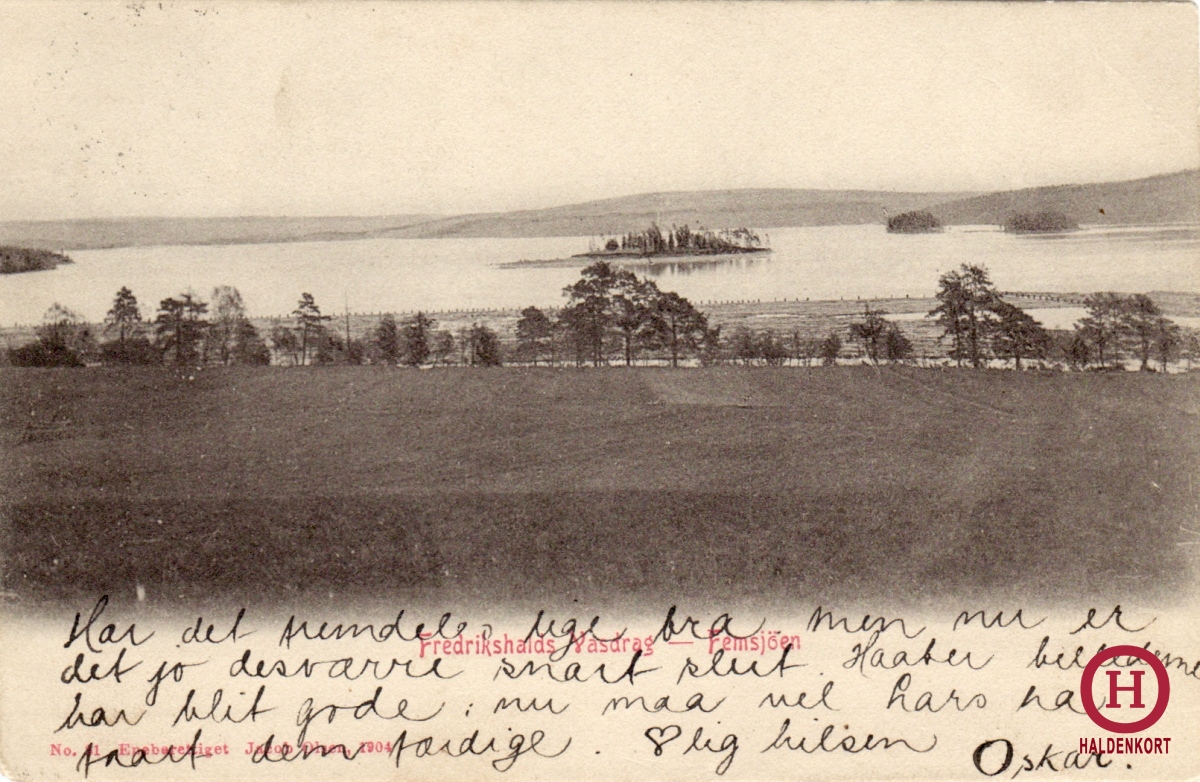 Har det fremdeles lige bra men nu er
Fredrikshalds Vasdrag — Femsjöen
det jo desværre snart slut. Haaber billederne
har blit gode; nu maa vel Lars ha
No. 11 Eneberettiget Jacob Olsen, 1904
faaet dem færdige. ♡lig hilsen
Oskar.
H
HALDENKORT